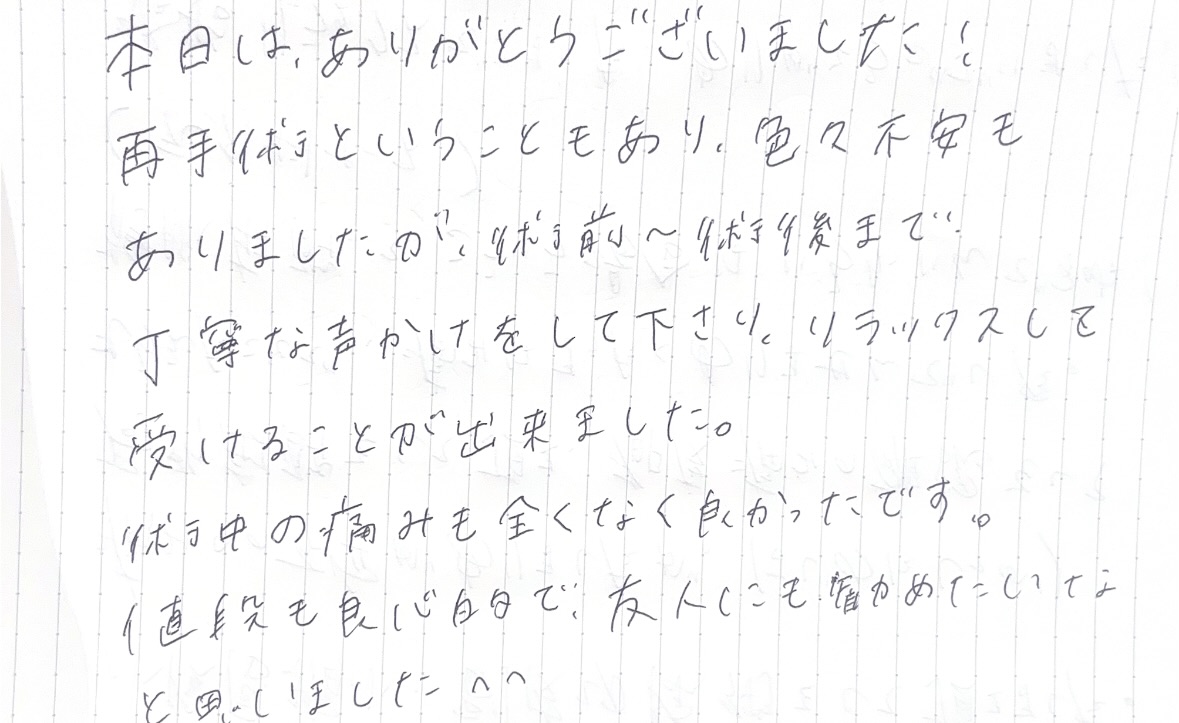 本日は、ありがとうございました！
再手術ということもあり、色々不安も
ありましたが、術前～術後まで
丁寧な声かけをして下さり、リラックスして
受けることが出来ました。
術中の痛みも全くなく良かったです。
値段も良心的で、友人にも薦めたいな
と思いました^^